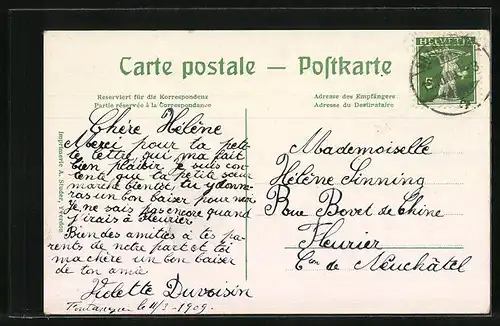 Carte postale — Postkarte
HELVETIA
5
Reserviert für die Korrespondenz
Partie réservée à la Correspondance
Adresse des Empfängers
Adresse du Destinataire
Imprimerie A. Studer, Yverdon
Chère Hélène
Merci pour ta petite
lettre, qui m'a fait
bien plaisir, je suis con-
tente que ta petite sœur
marche bientôt, tu y donne-
ras un bon baiser pour moi
Je ne sais pas encore quand
j'irais à Fleurier.
Bien des amitiés à tes pa-
rents de notre part et toi
ma chère un bon baiser
de ton amie
Violette Duvoisin
le 11/3 - 1909.
Mademoiselle
Hélène Sinning
Rue Bovet de Chine
Fleurier
Con de Neuchâtel